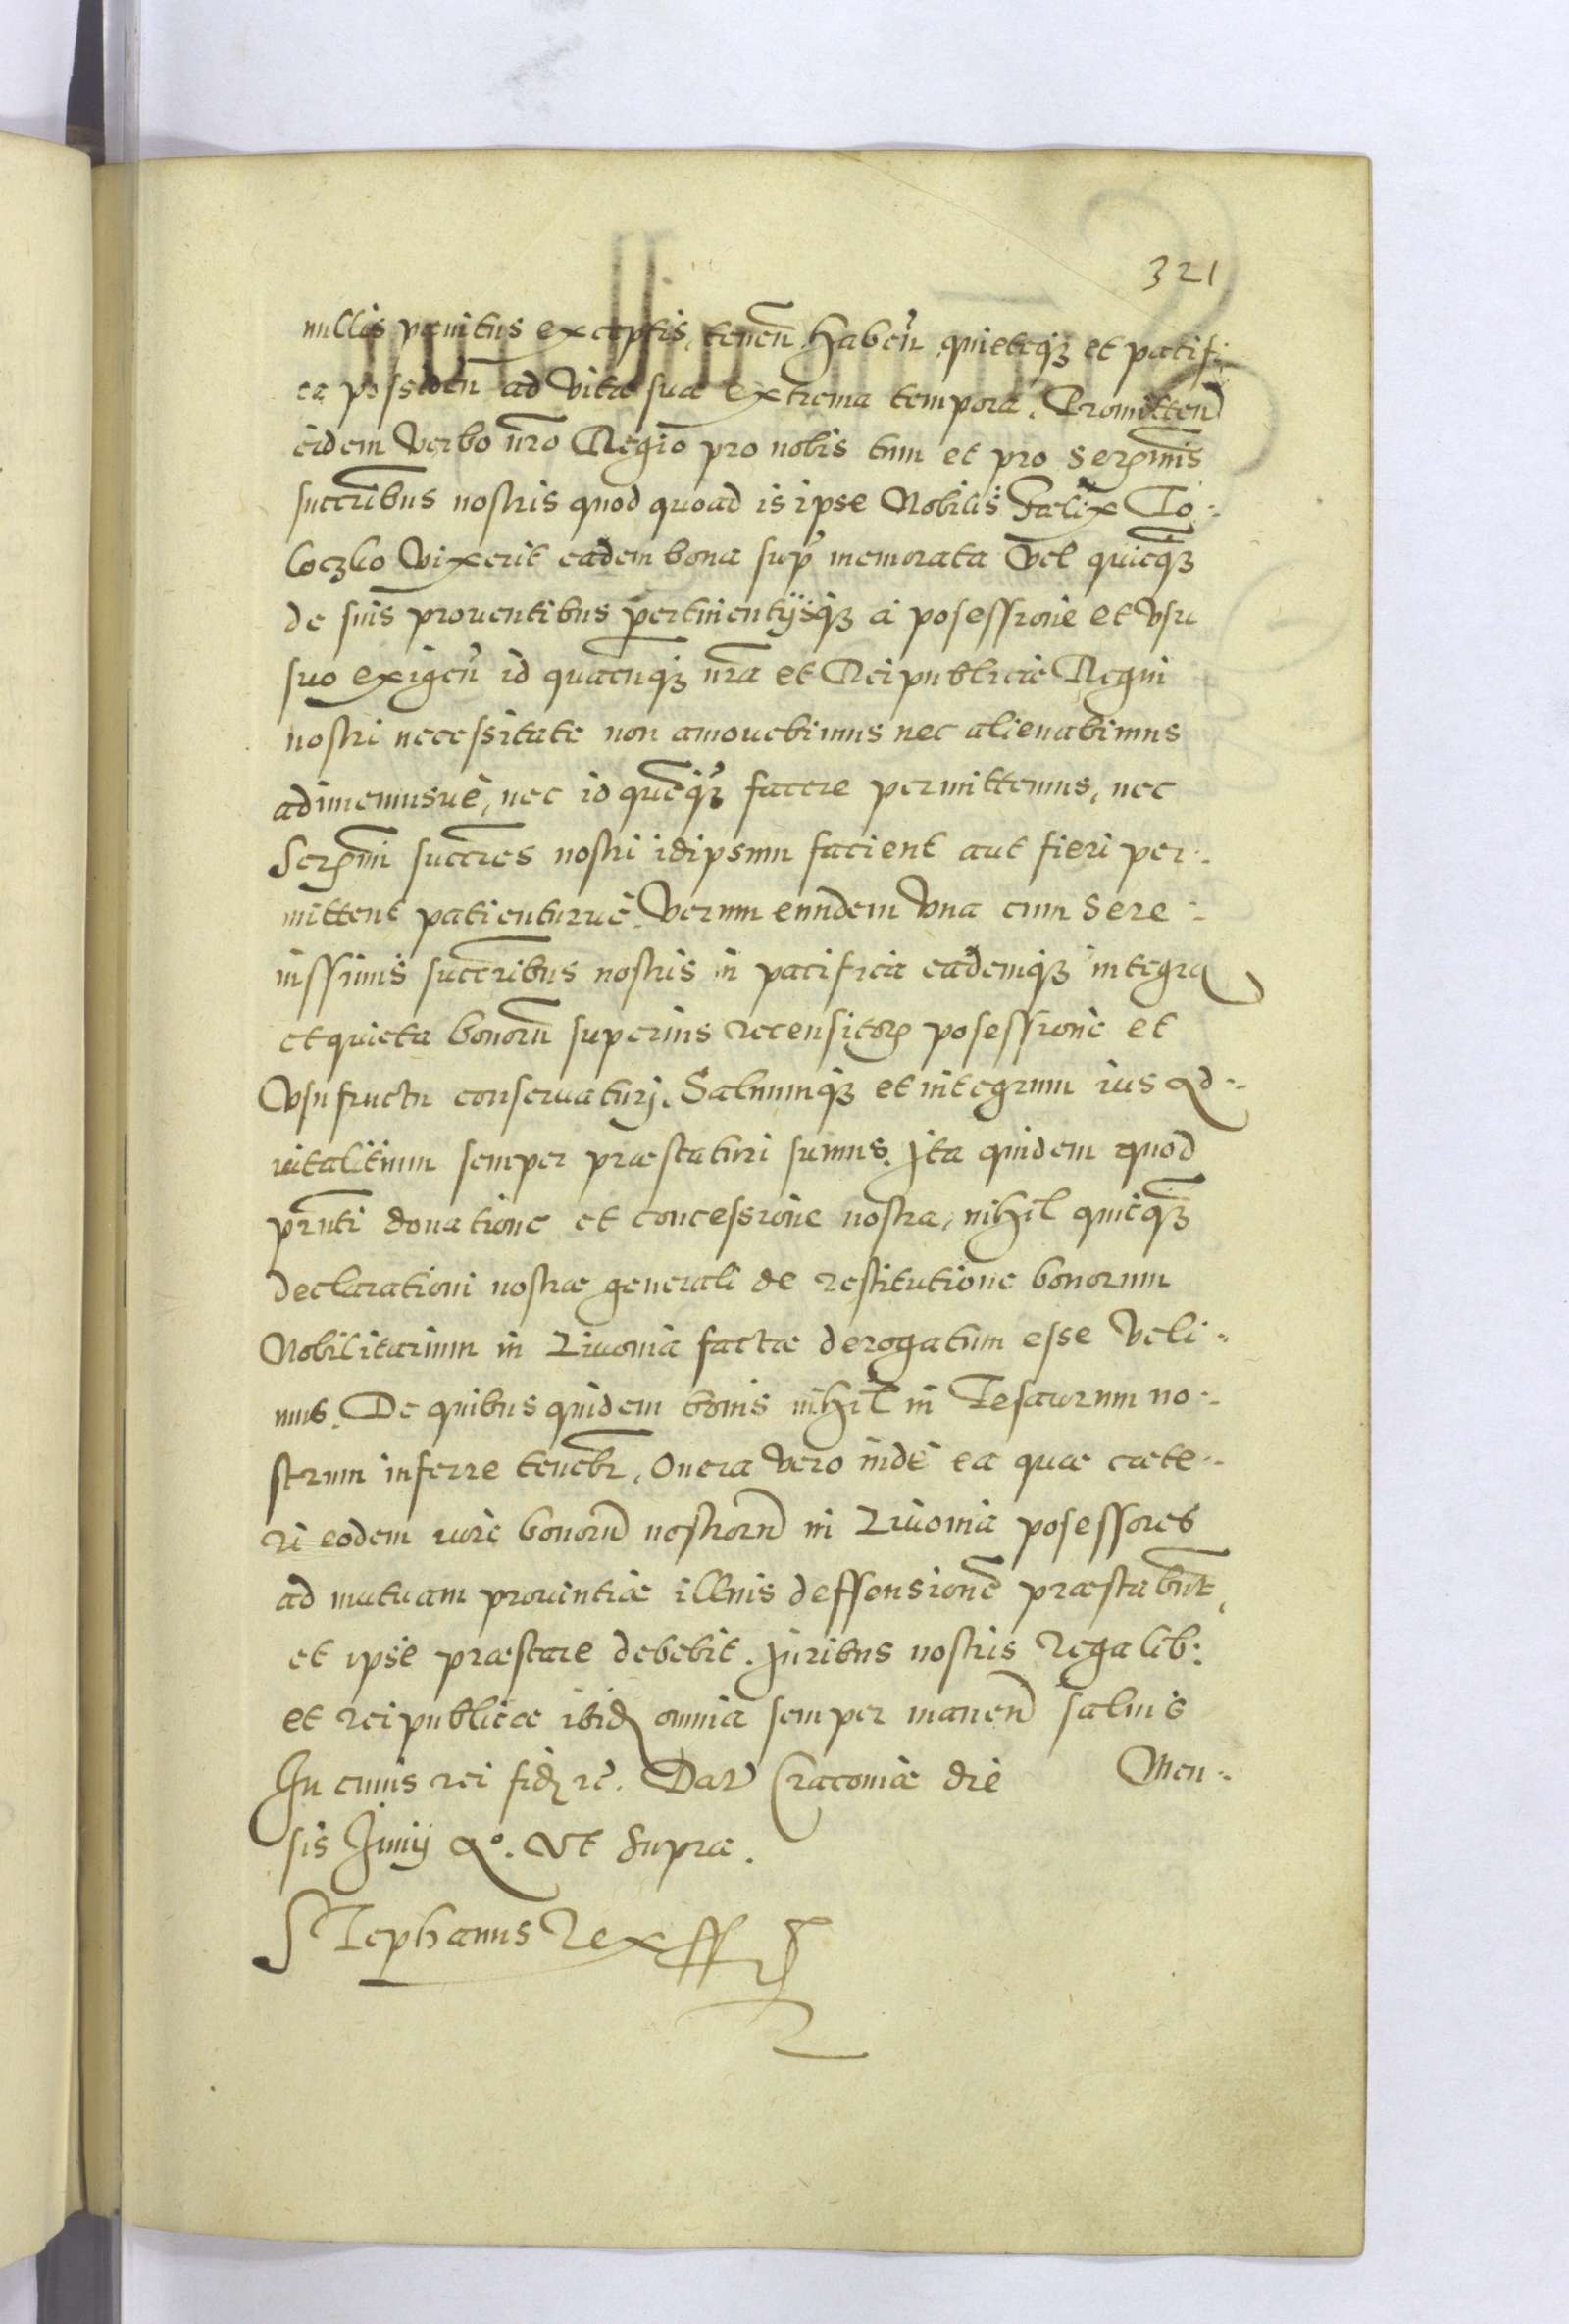 321
nullis pænitus exceptis, tenen̄ haben̄ quieteq3 et pacifi
cæ possiden̄ ad vitæ suæ extrema tempora. Promitten̄
eidem verbo nr̄o Regio pro nobis tum et pro Serm̄is
succr̄ibus nostris quod quoad is ipse Nobilis Fælix To-
loczko vixerit eadem bona sup memorata vel quicq̄3
de suis prouentibus pertinentijsq3 a posessione et vsu
suo exigen̄ id quacūq3 nr̄a et Reipublicæ Regni
nostri necessitate non amouebimus nec alienabimus
adimemusuè, nec id quēq3 facere permittemus, nec
Serm̄i succr̄es nostri idipsum facient aut fieri per-
mittent patienturuè. Verum eundem vna cum Sere-
nissimis succr̄ibus nostris in pacifica eademq3 integra
et quieta bonorū superius recensitor posessione et
Vsufructu conseruaturj. Saluumq3 et integrum ius ad-
vitalitium semper præstaturi sumus. Jta quidem quod
prn̄ti donatione et concessione nostra, nihil quicq̄3
declarationi nostræ generali de restitutione bonorum
Nobilitarium in Liuonia factæ derogatum esse veli-
mus. De quibus quidem bonis nihil in Tesaurum no-
strum inferre tenebr̄. Onera vero indè ea quæ cæte-
ri eodem iure bonorū nostrorū in Liuonia posessores
ad mutuam prouintiæ illius deffensionē præstabūt,
et ipse præstare debebit. Juribus nostris Regalib:
et reipublicæ ibid omnia semper manen̄ saluis
In cuius rei fid rc̄. Dat Cracouiæ die Men-
sis Junij Ao. vt supra.
Stephanus Rex ss